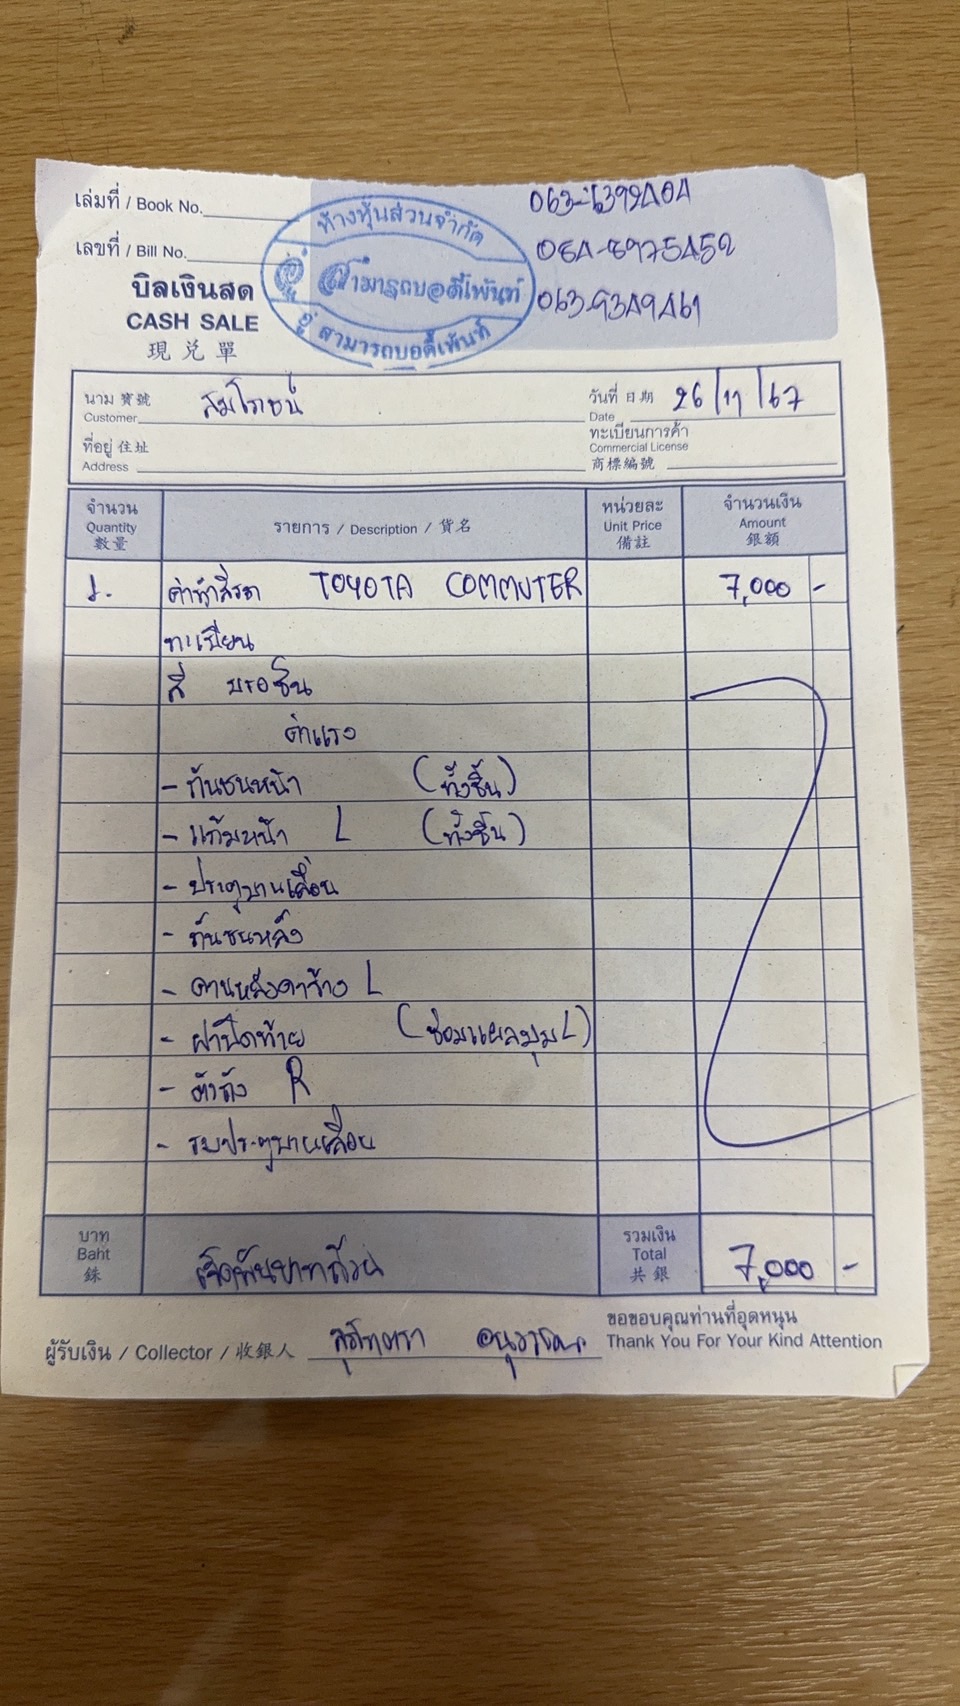 เล่มที่ / Book No.
เลขที่ / Bill No.
บิลเงินสด
CASH SALE
現兌單
ห้างหุ้นส่วนจำกัด
สามารถบอดี้เพ้นท์
อู่ สามารถบอดี้เพ้นท์
063-6392404
064-8975452
063-9349461
นาม 寶號
Customer สมโภชน์
วันที่ 日期
Date 26/11/67
ที่อยู่ 住址
Address
ทะเบียนการค้า
Commercial License
商標編號
จำนวน
Quantity
數量
รายการ / Description / 貨名
หน่วยละ
Unit Price
備註
จำนวนเงิน
Amount
銀額
1. ค่าทำสีรถ TOYOTA COMMUTER 7,000 -
ทะเบียน
สี บรอซ์น
ค่าแรง
- กันชนหน้า (ทั้งชิ้น)
- แก้มหน้า L (ทั้งชิ้น)
- ประตูบานเลื่อน
- กันชนหลัง
- คานหลังคาข้าง L
- ฝาปิดท้าย (ซ่อมแผลมุม L)
- ตัวถัง R
- รมประตูบานเลื่อน
บาท
Baht
銖
เจ็ดพันบาทถ้วน
รวมเงิน
Total
共銀
7,000 -
ผู้รับเงิน / Collector / 收銀人
ขอขอบคุณท่านที่อุดหนุน
Thank You For Your Kind Attention